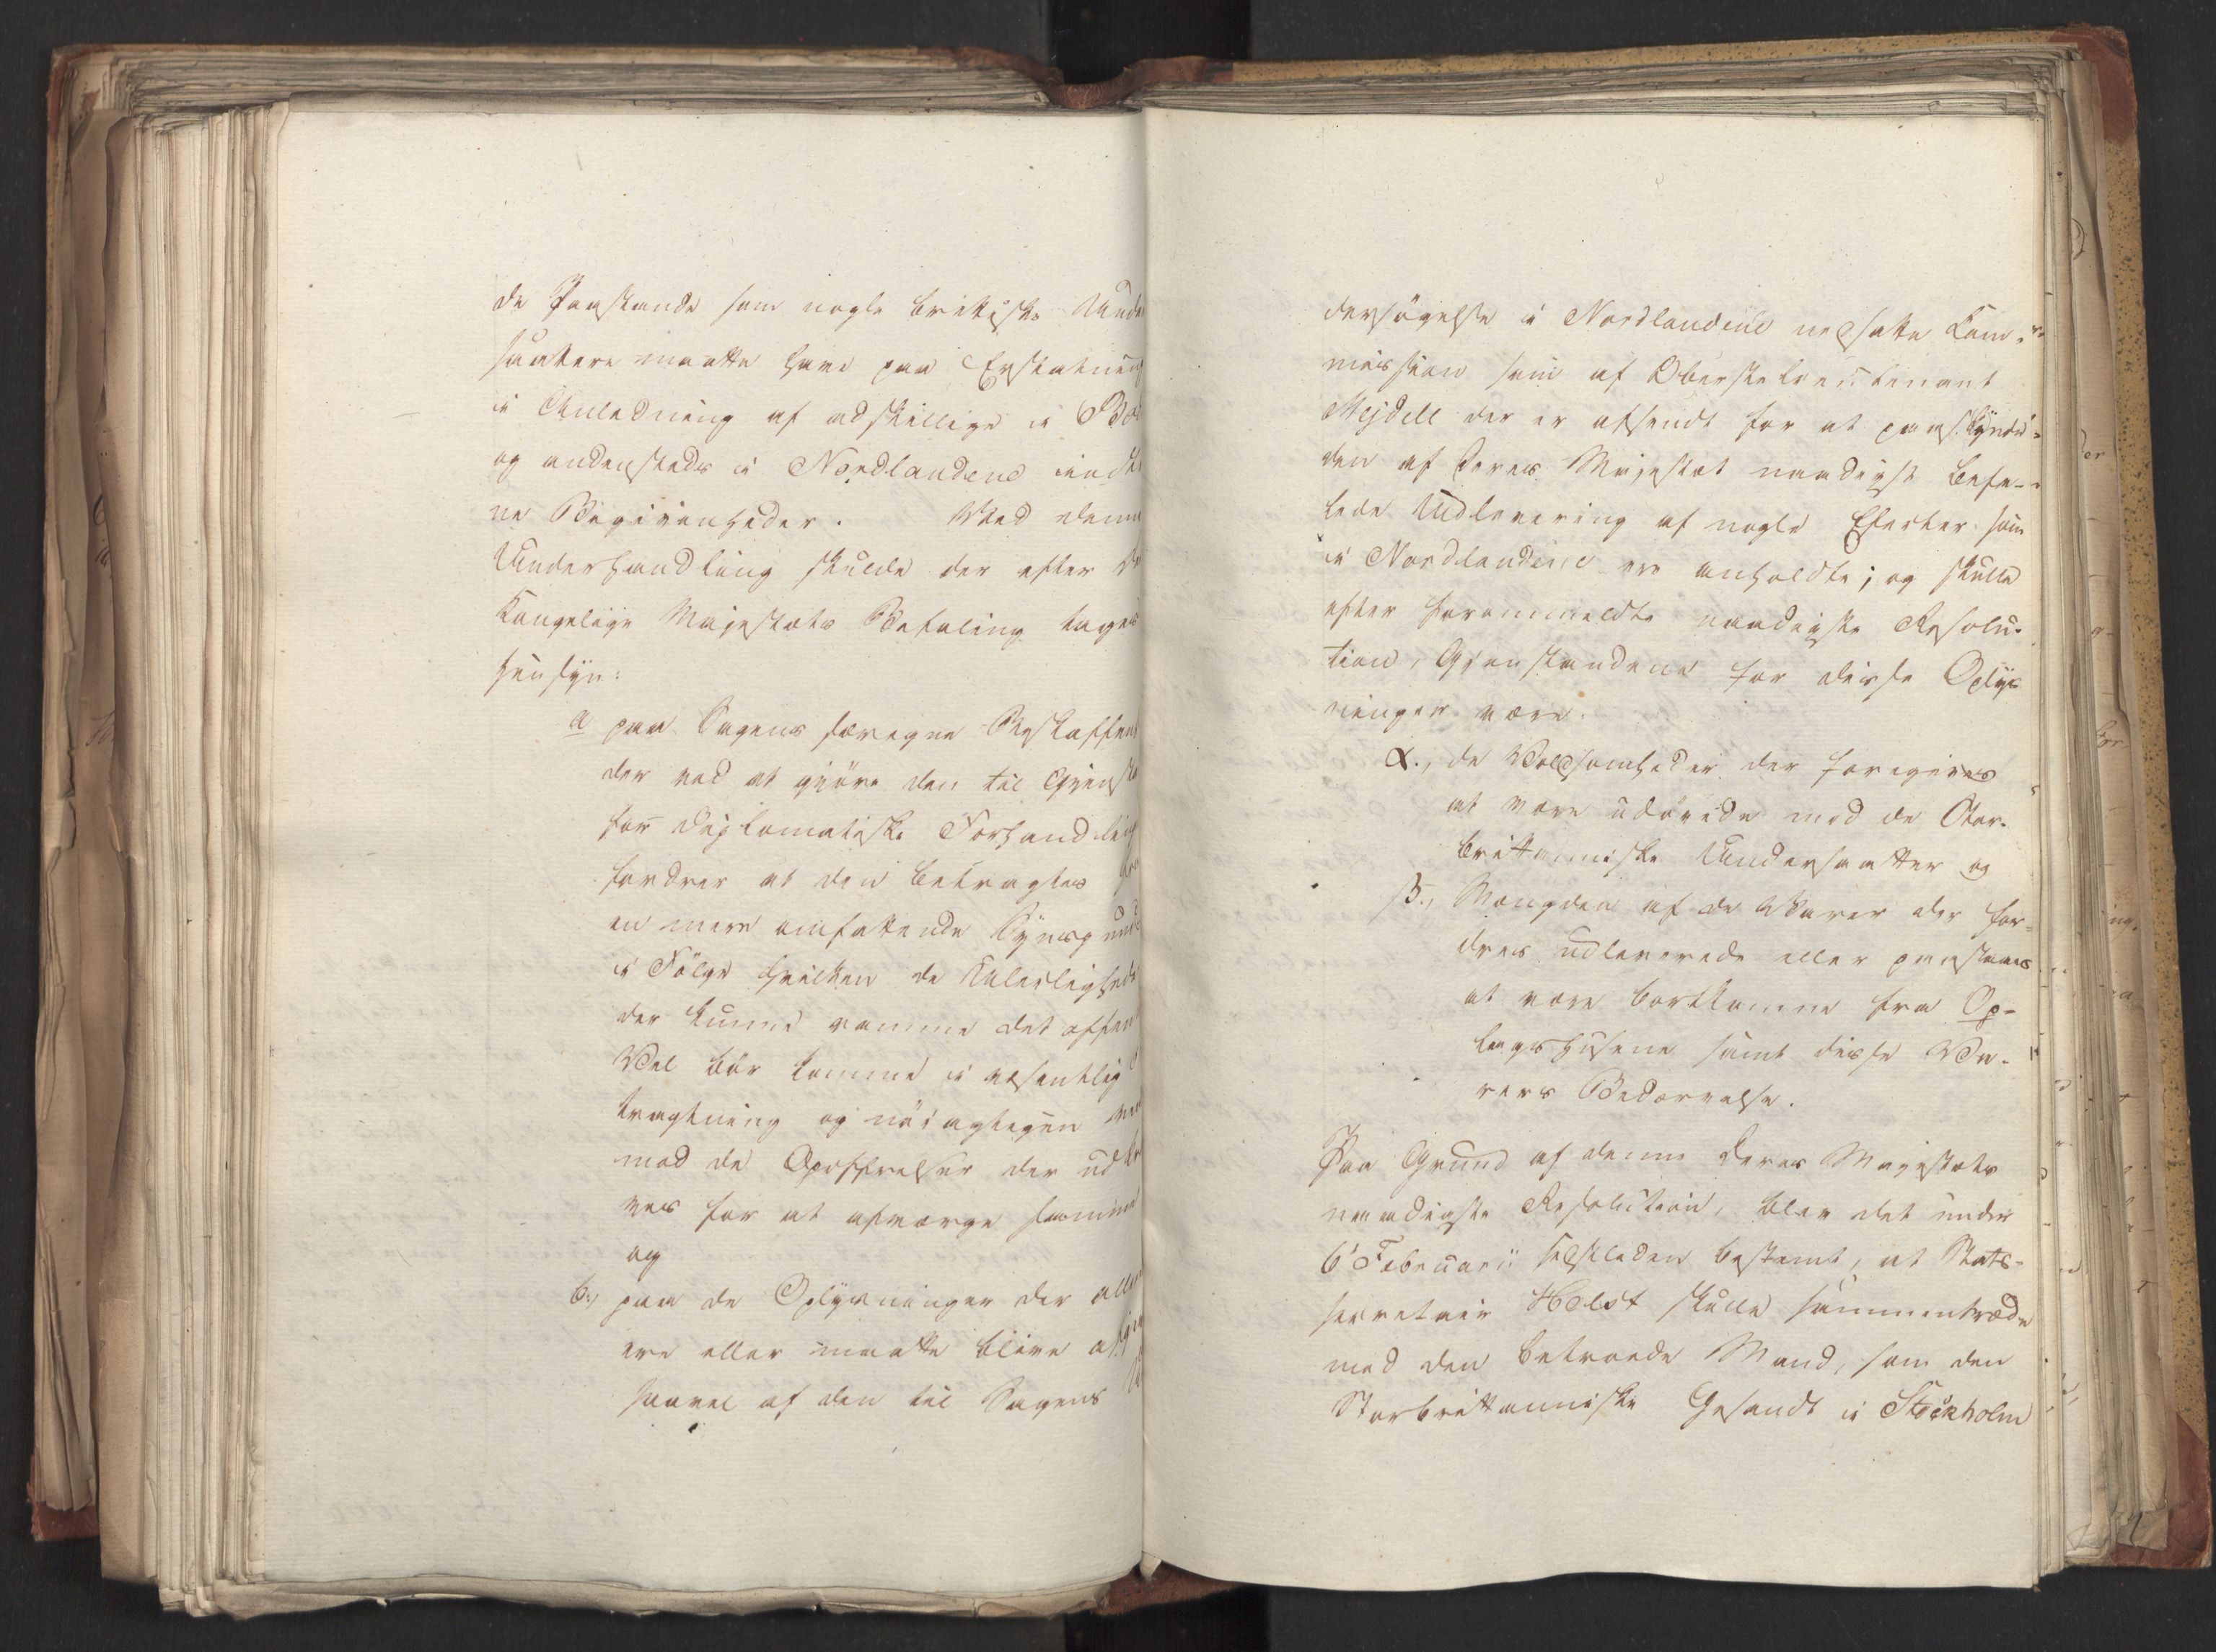 de Paastande som nogle brittiske Under
saatere maatte have paa Erstatning
i Anledning af adskillige i Bod
og andensteds i Nordlandene indtr
ne Begivenheder. Ved denne
Underhandling skulde der efter De
Kongelige Majestæts Befaling tages
Hensyn:
a paa Sagens særegne Beskaffen
der ved at gjöre den til Gjensta
for diplomatiske Forhandling
fordrer at den betragtes fra
en mere omfattende Synspunct
i Fölge hvilken de Ulæiligheder
der kunne ramme det offent
Vel bör komme i væsentlig
tragtning og nöiagtigen
mod de Opoffrelser der udkr
ves for at afværge samme
og
b., paa de Oplysninger der aller
ere eller maatte blive afgiv
saavel af den til Sagens
dersögelse i Nordlandene nedsatte Kom-
mission som af Oberstelieutenant
Mejdell der er afsendt for at paaskynde
den af Deres Majestæt naadigst befa-
lede Udlevering af nogle Efecter som
i Nordlandene ere anholdte; og skulle
efter forommeldte naadigste Resolu-
tion, Gjenstandene for disse Oplys
ninger være.
α., de Voldsomheder der foregives
at være udövede mod de Stor-
brittanniske Undersaatter og
β., Mængden af de Varer der for-
dres udleverede eller paastaaes
at være bortkomne fra Op-
lagshusene samt disse Va-
rers Bedærvelse.
Paa Grund af denne Deres Majestæts
naadigste Resolution, blev det under
6' Februarii sidstleden bestemt, at Stats-
secretair Holst skulle sammentræde
med den betroede Mand, som den
Storbrittanniske Gesandt i Stockholm